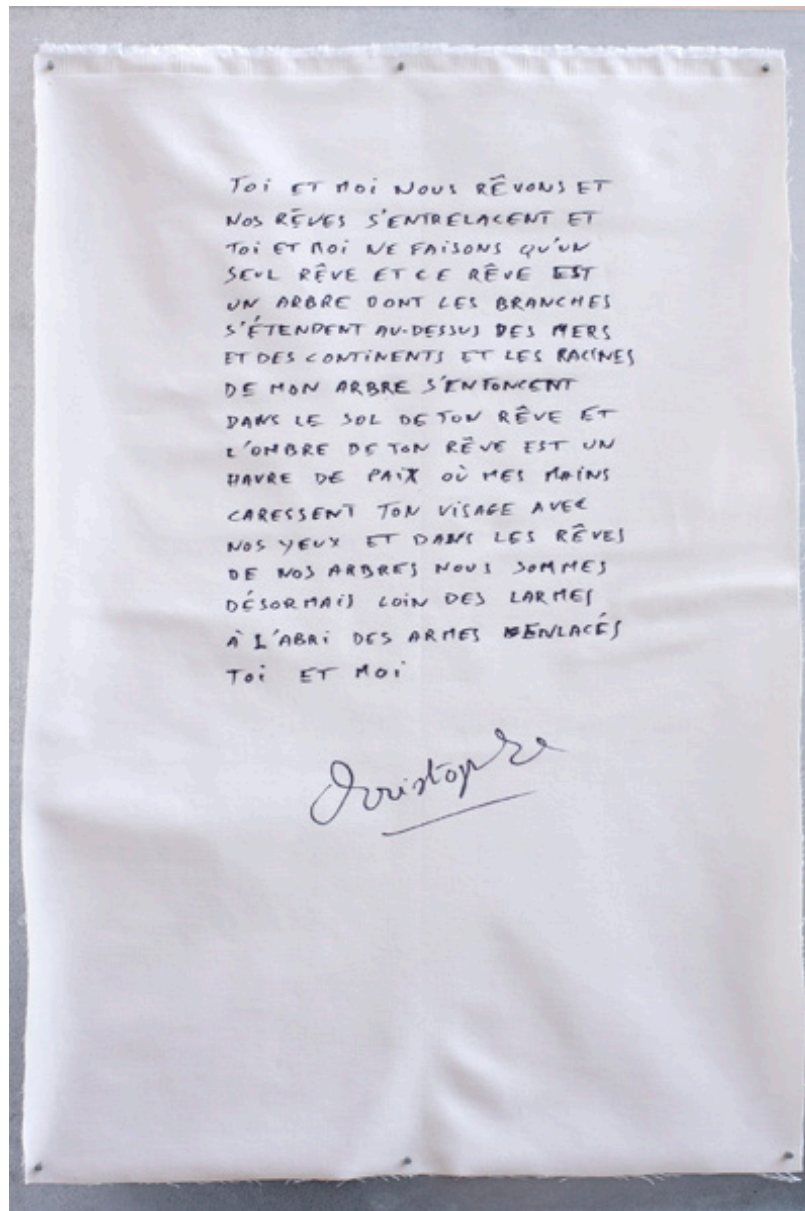 TOI ET MOI NOUS RÊVONS ET
NOS RÊVES S'ENTRELACENT ET
TOI ET MOI NE FAISONS QU'UN
SEUL RÊVE ET CE RÊVE EST
UN ARBRE DONT LES BRANCHES
S'ÉTENDENT AU-DESSUS DES MERS
ET DES CONTINENTS ET LES RACINES
DE MON ARBRE S'ENFONCENT
DANS LE SOL DE TON RÊVE ET
L'OMBRE DE TON RÊVE EST UN
HAVRE DE PAIX OÙ MES MAINS
CARESSENT TON VISAGE AVEC
NOS YEUX ET DANS LES RÊVES
DE NOS ARBRES NOUS SOMMES
DÉSORMAIS LOIN DES LARMES
À L'ABRI DES ARMES ENLACÉS
TOI ET MOI
Christophe